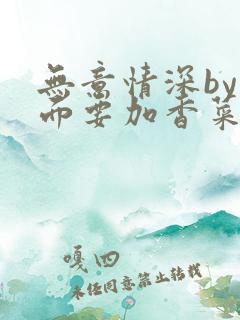 無意情深by
而要加香菜
嘎四
未经同意禁止转载